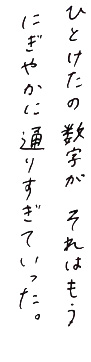 ひとけたの数字が それはもう
にぎやかに通りすぎていった。